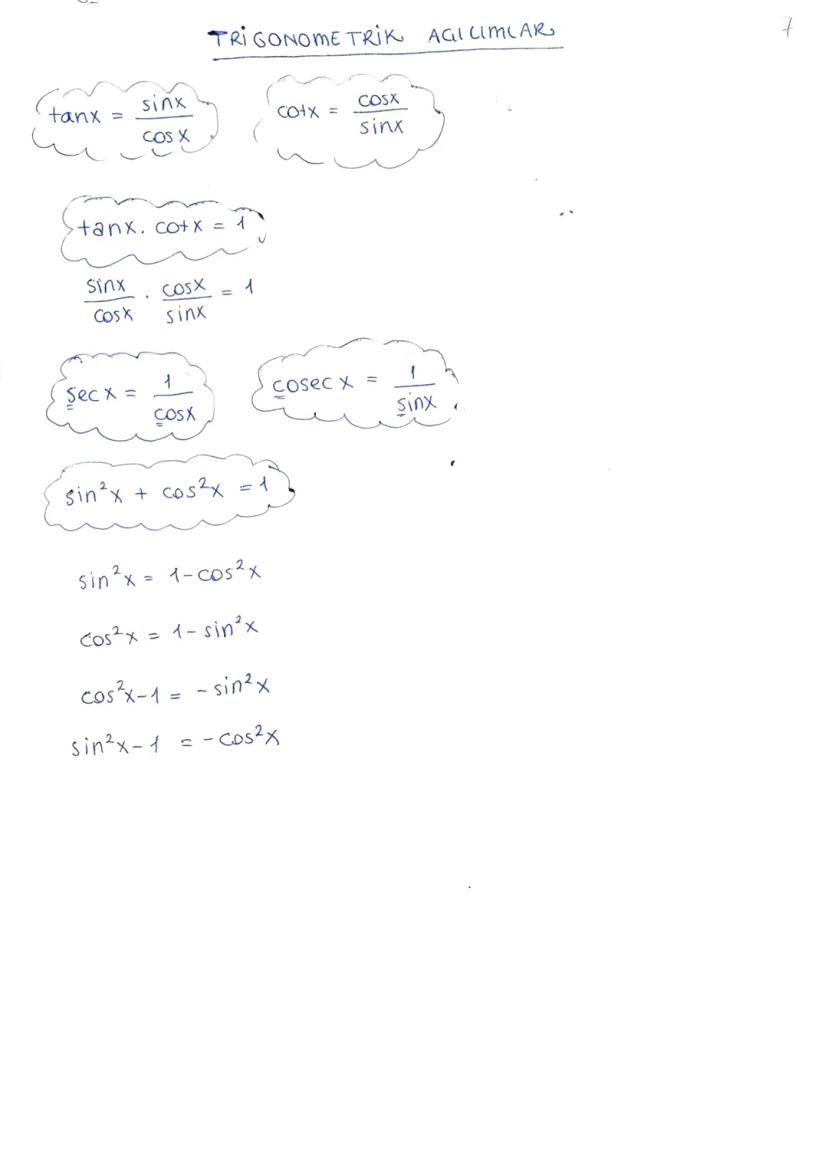 TRİGONOMETRİK AÇILIMLAR
7
tanx = sinx/cosx
cotx = cosx/sinx
tanx. cotx = 1
sinx/cosx . cosx/sinx = 1
secx = 1/cosx
cosecx = 1/sinx
sin²x + cos²x = 1
sin²x = 1-cos²x
cos²x = 1-sin²x
cos²x-1 = -sin²x
sin²x-1 = -cos²x